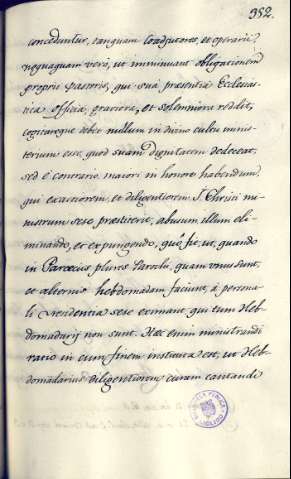 352.
conceduntur, tanquam Coadjutores, et operarii
nequaquam verò, ut imminuant obligationem
proprii Pastoris, qui suâ præsentiâ Ecclesias-
tica officia, graviora, et solemniora reddit,
cogitareque debet nullum in divino cultu minis-
terium esse, quod suam dignitatem dedeceat,
sed è contrario maiori in honore habendum,
qui exactiorem, et diligentiorem J. Christi mi-
nistrum sese præstiterit, abusum illum eli-
minando, et expungendo, quô fit, ut, quando
in Parœciis plures Parochi, quam unus sunt,
et alternis hebdomadam faciunt, à persona-
li residentia sese eximant, qui tum Heb-
domadarij non sunt. Hæc enim ministrandi
ratio in eum finem instituta est, ut Heb-
domadarius diligentiorem curam cantandi